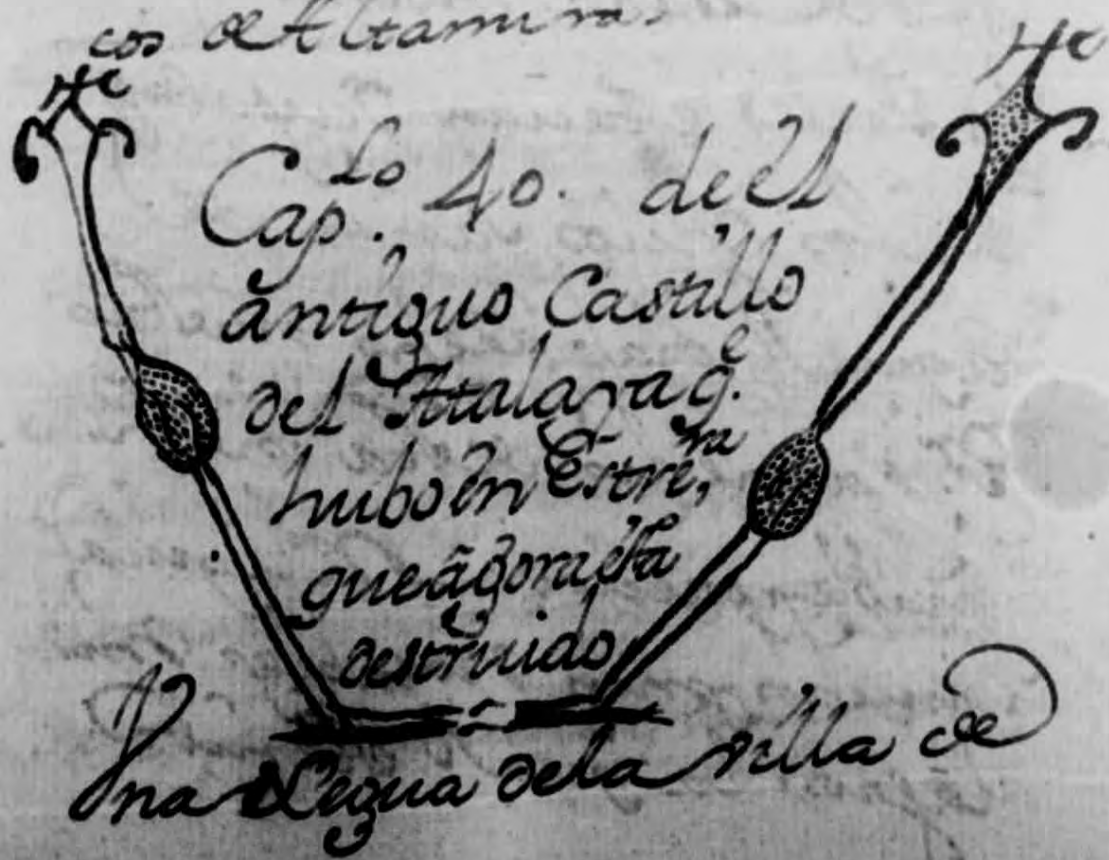 cos de Altamira.
Cap.lo 40. de el
antiguo Castillo
del Atalaya q.e
hubo en Estre.ra,
que agora esta
destruido
Vna Legua de la villa de